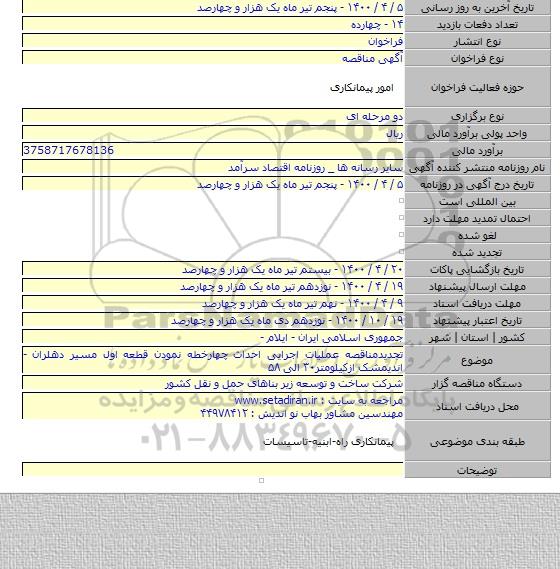 تاریخ آخرین به روز رسانی ۵ / ۴ / ۱۴۰۰ - پنجم تیر ماه یک هزار و چهارصد
تعداد دفعات بازدید ۱۴ - چهارده
نوع انتشار فراخوان
نوع فراخوان آگهی مناقصه
حوزه فعالیت فراخوان امور پیمانکاری
نوع برگزاری دو مرحله ای
واحد پولی برآورد مالی ریال
برآورد مالی 3758717678136
نام روزنامه منتشر کننده آگهی سایر رسانه ها _ روزنامه اقتصاد سرآمد
تاریخ درج آگهی در روزنامه ۵ / ۴ / ۱۴۰۰ - پنجم تیر ماه یک هزار و چهارصد
بین المللی است
احتمال تمدید مهلت دارد
لغو شده
تجدید شده
تاریخ بازگشایی پاکات ۲۰ / ۴ / ۱۴۰۰ - بیستم تیر ماه یک هزار و چهارصد
مهلت ارسال پیشنهاد ۱۹ / ۴ / ۱۴۰۰ - نوزدهم تیر ماه یک هزار و چهارصد
مهلت دریافت اسناد ۹ / ۴ / ۱۴۰۰ - نهم تیر ماه یک هزار و چهارصد
تاریخ اعتبار پیشنهاد ۱۹ / ۱۰ / ۱۴۰۰ - نوزدهم دی ماه یک هزار و چهارصد
کشور | استان | شهر جمهوری اسلامی ایران - ایلام -
موضوع تجدیدمناقصه عملیات اجرایی احداث چهارخطه نمودن قطعه اول مسیر دهلران -
اندیمشک ازکیلومتر۳۰ الی ۵۸
دستگاه مناقصه گزار شرکت ساخت و توسعه زیر بناهای حمل و نقل کشور
محل دریافت اسناد مراجعه به سایت : www.setadiran.ir
مهندسین مشاور بهاب نو اندیش : ۴۴۹۷۸۴۱۲
طبقه بندی موضوعی پیمانکاری راه-ابنیه-تاسیسات
توضیحات
ParsNamadData
پایگاه اطلاع رسانی مناقصه و مزایده
۰۲۱-۸۸۳۴۹۶۷۰-۵